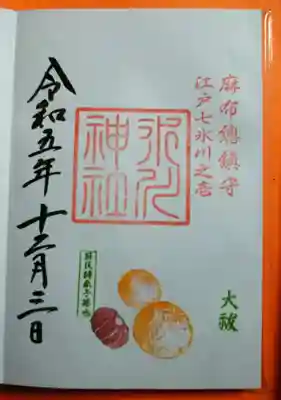 麻布總鎮守
江戸七氷川之壱
氷川
神社
大祓
令和五年十二月三日